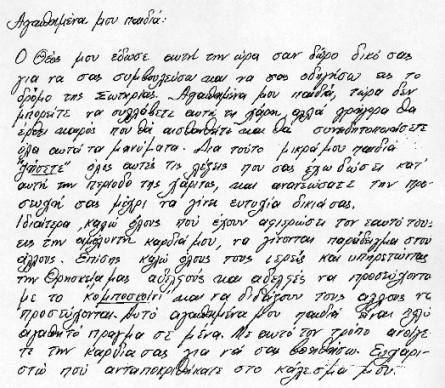 Αγαπημένα μου παιδιά:
Ο Θεός μου έδωσε αυτή την ώρα σαν δώρο δικό σας
για να σας συμβουλεύσω και να σας οδηγήσω εις το
δρόμο της Σωτηρίας. Αγαπημένα μου παιδιά, τώρα δεν
μπορείτε να συλλάβετε αυτή τη χάρη, αλλά γρήγορα θα
έρθει καιρός που θά αισθανθείτε και θά συνειδητοποιήσετε
όλα αυτά τα μηνύματα. Δια τούτο μικρά μου παιδιά
"ζήσετε" όλες αυτές τις λέξεις που σας έχω δώσει κατ'
αυτή την περίοδο της χάριτας, και ανανεώσατε την προ-
σευχή σας μέχρι να γίνει ευτυχία δικιά σας.
Ιδιαίτερα, καλώ όλους πού έχουν αφιερώσει τον εαυτό τους
εις την αμόλυντη καρδιά μου, να γίνονται παράδειγμα στου
άλλους. Επίσης καλώ όλους τους ιερείς και υπηρετώντας
την Θρησκεία μας αδελφούς και αδελφές να προσεύχονται
με το "κομποσχοίνι" και να διδάξουν τους αλλους να
προσεύχονται. Αυτό αγαπημένα μου παιδιά είναι πολύ
αγαπητό πραγμα σέ μένα. Με αυτό τον τρόπο ανοίγε-
τε την καρδια σας για να σας βοηθήσω. Ευχαρι-
στώ που ανταποκριθήκατε στο κάλεσμά μου.